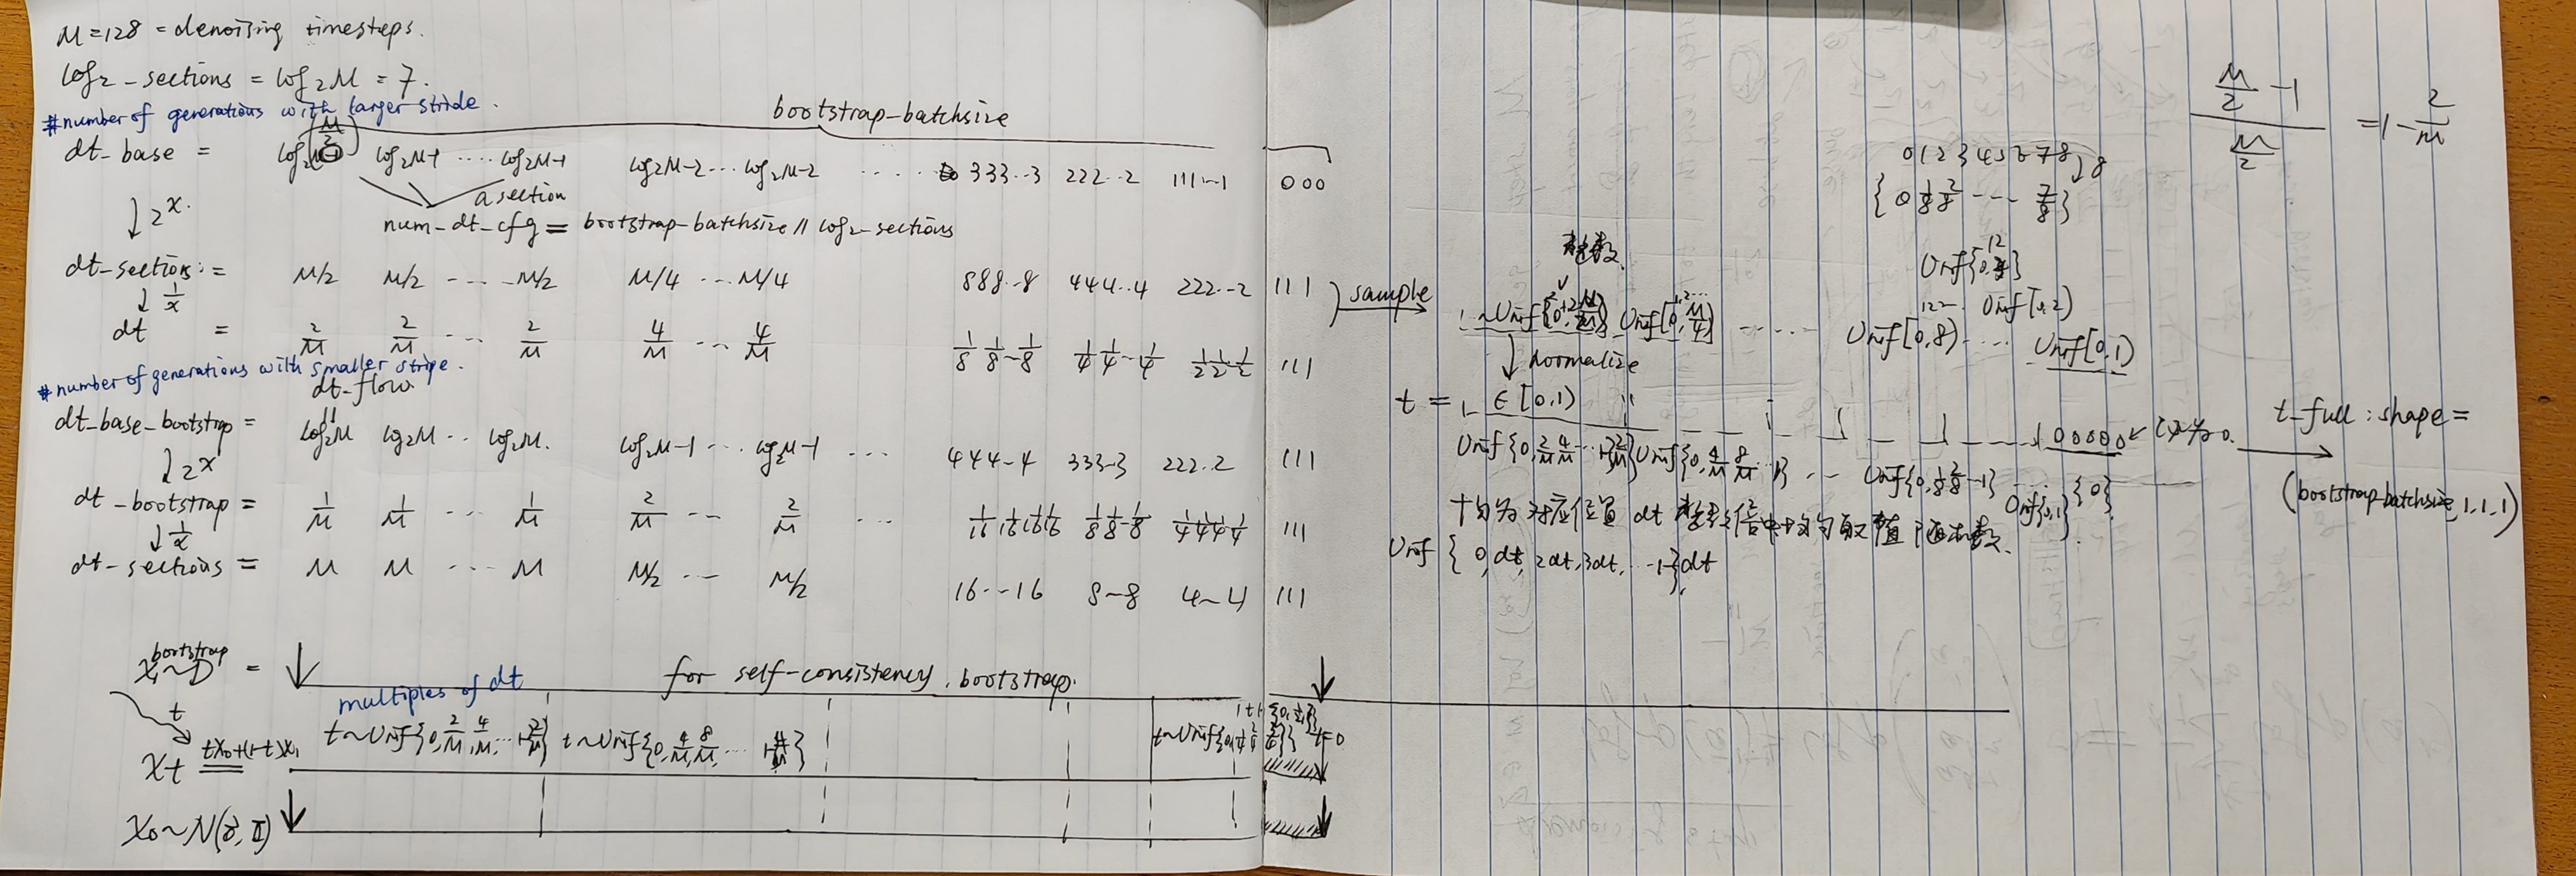 M=128 = denoising timesteps.
log₂-sections = log₂M = 7.
#number of generations with larger stride.
bootstrap-batchsize
dt-base = log₂M-1 log₂M-1 ···· log₂M-1 log₂M-2 ··· log₂M-2 ···· 333··3 222··2 111··1 000
↓2^x. a section
num-dt-cfg = bootstrap-batchsize // log₂-sections
dt-sections: = M/2 M/2 --- M/2 M/4 --- M/4 888··8 444··4 222··2 111
↓ 1/x
dt = 2/M 2/M ··· 2/M 4/M ··· 4/M 1/8 1/8 ~ 1/8 1/4 1/4 ~ 1/4 1/2 1/2 1/2 111
#number of generations with smaller stripe.
dt-flow
dt-base-bootstrap = log₂M log₂M ·· log₂M. log₂M-1 ··· log₂M-1 ··· 444~4 333~3 222·2 111
↓2^x
dt-bootstrap = 1/M 1/M ··· 1/M 2/M ··· 2/M ··· 1/16 1/16 1/16 1/16 1/8 1/8 1/8 1/4 1/4 1/4 1/4 111
↓ 1/x
dt-sections = M M ··· M M/2 ··· M/2 16···16 8~8 4~4 111
bootstrap
X₁~D = ↓ for self-consistency, bootstrap.
multiples of dt
t
t~Unif{0, 2/M, 4/M, ··· 1-2/M} t~Unif{0, 4/M, 8/M, ··· t=0
Xt tX₀+(1-t)X₁
X₀~N(0, I)
M/2 -1
M/2
=1- 2/M
0 1 2 3 4 5 6 7 8 ↓8
{0 1/8 2/8 --- 7/8}
sample
Unif[0, M/4] ····· Unif[0,8) ··· Unif[0,1)
Unif[0,2)
↓ normalize
t = ∈[0,1)
00000
t-full: shape =
(bootstrap-batchsize,1,1,1)
Unif{0, 2/M 4/M ··· 1-2/M} Unif{0, 4/M 8/M ··1} ·· Unif{0, 1/8 2/8 ~1} ···· {0}
Unif{0,1}
均为对应位置 dt 倍中均匀取值随机数.
Unif { 0, dt, 2dt, 3dt, ··· 1-dt}